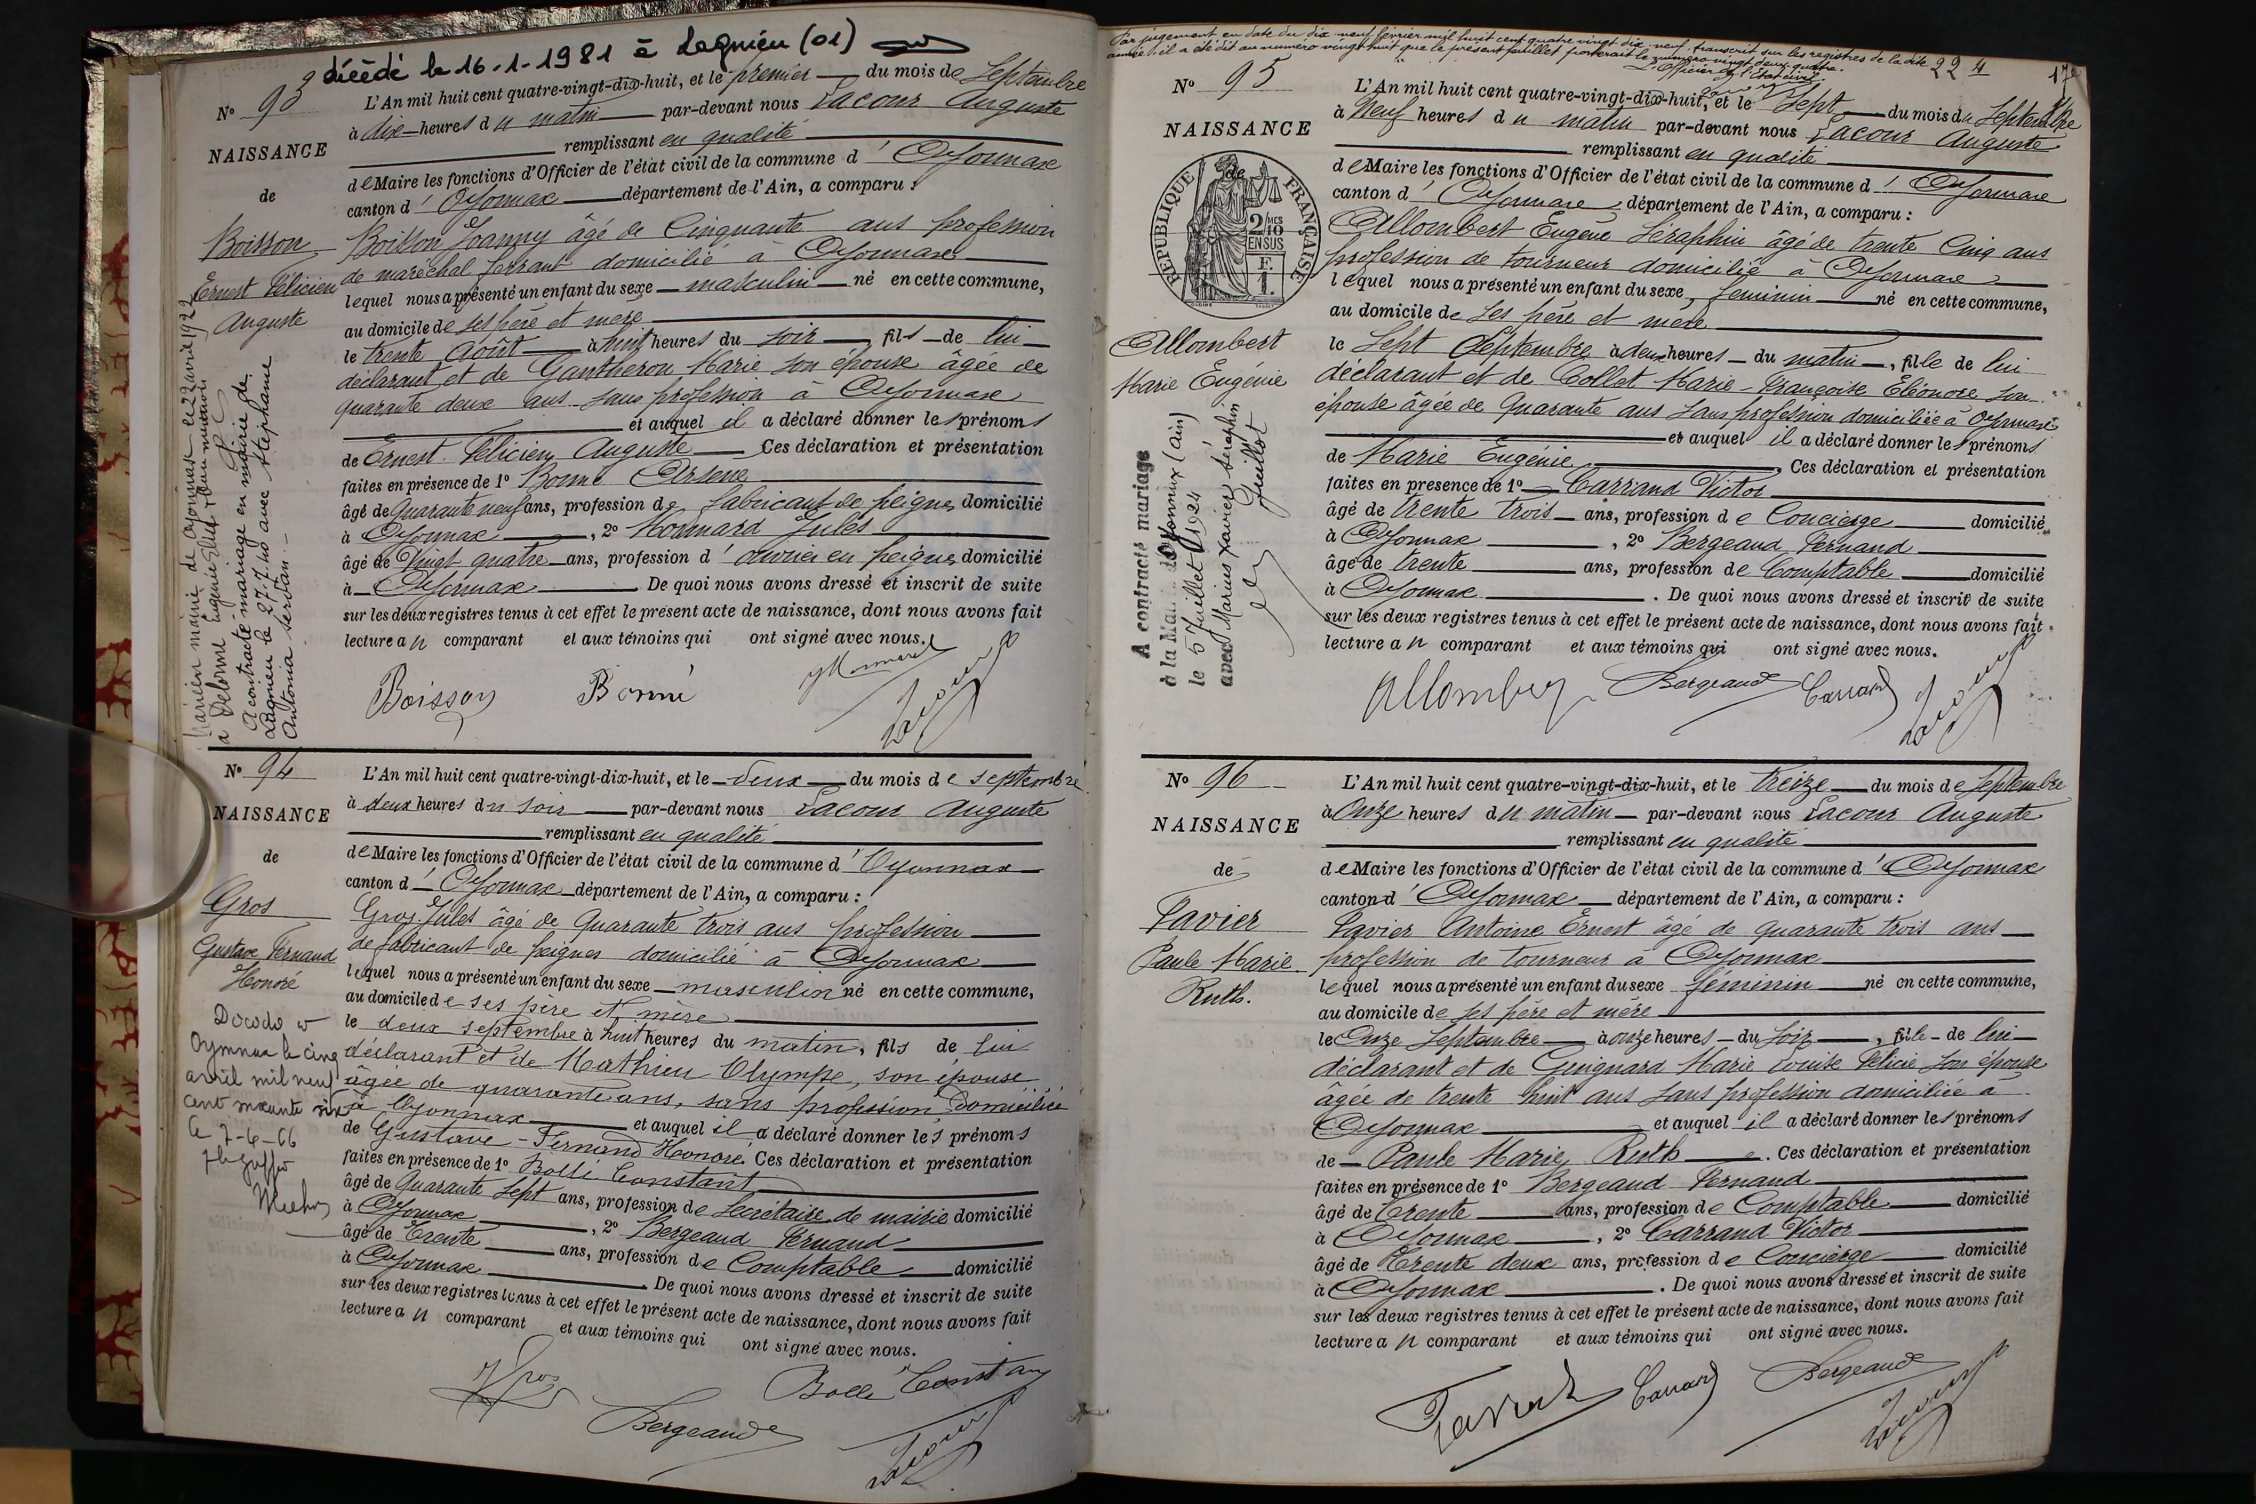 décédé le 16-1-1981 à Lagnieu (01)
N° 93
NAISSANCE
de
Boisson
Ernest Félicien
Auguste
L'An mil huit cent quatre-vingt-dix-huit, et le premier du mois de Septembre
à dix heures du matin par-devant nous Lacour Auguste
remplissant en qualité
de Maire les fonctions d'Officier de l'état civil de la commune d'Oyonnax
canton d'Oyonnax département de l'Ain, a comparu :
Boisson Joanny âgé de Cinquante ans profession
de maréchal ferrant domicilié à Oyonnax
lequel nous a présenté un enfant du sexe masculin né en cette commune,
au domicile de ses père et mère
le trente Août à huit heures du soir, fils de lui
déclarant et de Gantheron Marie son épouse âgée de
quarante deux ans sans profession à Oyonnax
et auquel il a déclaré donner les prénoms
de Ernest Félicien Auguste Ces déclaration et présentation
faites en présence de 1° Bonné Arsène
âgé de Quarante neuf ans, profession de fabricant de peignes domicilié
à Oyonnax, 2° Monnard Jules
âgé de Vingt quatre ans, profession d'ouvrier en peignes domicilié
à Oyonnax De quoi nous avons dressé et inscrit de suite
sur les deux registres tenus à cet effet le présent acte de naissance, dont nous avons fait
lecture au comparant et aux témoins qui ont signé avec nous.
Boisson Bonné Monnard Lacour
mairie de Oyonnax le 22 avril 1922
A contracté mariage en mairie de
Lagnieu le 27.7.40 avec Stéphanie
Antonia Serdan.
N° 94
NAISSANCE
de
Gros
Gustave Fernand
Honoré
L'An mil huit cent quatre-vingt-dix-huit, et le deux du mois de septembre
à deux heures du soir par-devant nous Lacour Auguste
remplissant en qualité
de Maire les fonctions d'Officier de l'état civil de la commune d'Oyonnax
canton d'Oyonnax département de l'Ain, a comparu :
Gros Jules âgé de Quarante trois ans profession
de fabricant de peignes domicilié à Oyonnax
lequel nous a présenté un enfant du sexe masculin né en cette commune,
au domicile de ses père et mère
le deux septembre à huit heures du matin, fils de lui
déclarant et de Mathieu Olympe, son épouse
âgée de quarante ans, sans profession domiciliée
à Oyonnax et auquel il a déclaré donner les prénoms
de Gustave-Fernand Honoré. Ces déclaration et présentation
faites en présence de 1° Bolli Constant
âgé de Quarante Sept ans, profession de Secrétaire de mairie domicilié
à Oyonnax, 2° Bergeaud Fernand
âgé de Trente ans, profession de Comptable domicilié
à Oyonnax. De quoi nous avons dressé et inscrit de suite
sur les deux registres tenus à cet effet le présent acte de naissance, dont nous avons fait
lecture au comparant et aux témoins qui ont signé avec nous.
Décédé à
Oyonnax le cinq
avril mil neuf
cent soixante six
le 7-4-66
Gros Bolli Constant
Bergeaud Lacour
Par jugement en date du dix-neuf février mil huit cent quatre vingt dix-neuf, transcrit sur les registres de la dite
année, il a été dit au numéro vingt-huit que le présent feuillet porterait le numéro vingt-deux-quatre.
L'Officier de l'Etat civil.
22 4
17e
N° 95
NAISSANCE
de
RÉPUBLIQUE FRANÇAISE
2/10 MES
EN SUS
F.
1.
Allombert
Marie Eugénie
L'An mil huit cent quatre-vingt-dix-huit, et le Sept du mois de Septembre
à Neuf heures du matin par-devant nous Lacour Auguste
remplissant en qualité
de Maire les fonctions d'Officier de l'état civil de la commune d'Oyonnax
canton d'Oyonnax, département de l'Ain, a comparu :
Allombert Eugène Séraphin âgé de trente Cinq ans
profession de tourneur domicilié à Oyonnax
lequel nous a présenté un enfant du sexe féminin né en cette commune,
au domicile de ses père et mère
le Sept Septembre à deux heures du matin, fille de lui
déclarant et de Collet Marie-Françoise Eléonore son
épouse âgée de Quarante ans sans profession domiciliée à Oyonnax
et auquel il a déclaré donner les prénoms
de Marie Eugénie. Ces déclaration et présentation
faites en présence de 1° Carrand Victor
âgé de trente trois ans, profession de Concierge domicilié
à Oyonnax, 2° Bergeaud Fernand
âgé de trente ans, profession de Comptable domicilié
à Oyonnax. De quoi nous avons dressé et inscrit de suite
sur les deux registres tenus à cet effet le présent acte de naissance, dont nous avons fait
lecture au comparant et aux témoins qui ont signé avec nous.
A contracté mariage
à la Mairie d'Oyonnax (Ain)
le 5 Juillet 1924
avec Marius Xavier Séraphin
Guillot
Allombert Bergeaud Carrand Lacour
N° 96
NAISSANCE
de
Tavier
Paule Marie
Ruth.
L'An mil huit cent quatre-vingt-dix-huit, et le treize du mois de Septembre
à Onze heures du matin par-devant nous Lacour Auguste
remplissant en qualité
de Maire les fonctions d'Officier de l'état civil de la commune d'Oyonnax
canton d'Oyonnax département de l'Ain, a comparu :
Tavier Antoine Ernest âgé de quarante trois ans
profession de tourneur à Oyonnax
lequel nous a présenté un enfant du sexe féminin né en cette commune,
au domicile de ses père et mère
le Onze Septembre à onze heures du soir, fille de lui
déclarant et de Guignard Marie Louise Félicie son épouse
âgée de trente huit ans sans profession domiciliée à
Oyonnax et auquel il a déclaré donner les prénoms
de Paule Marie Ruth. Ces déclaration et présentation
faites en présence de 1° Bergeaud Fernand
âgé de Trente ans, profession de Comptable domicilié
à Oyonnax, 2° Carrand Victor
âgé de Trente deux ans, profession de Concierge domicilié
à Oyonnax. De quoi nous avons dressé et inscrit de suite
sur les deux registres tenus à cet effet le présent acte de naissance, dont nous avons fait
lecture au comparant et aux témoins qui ont signé avec nous.
Carrand Bergeaud Lacour